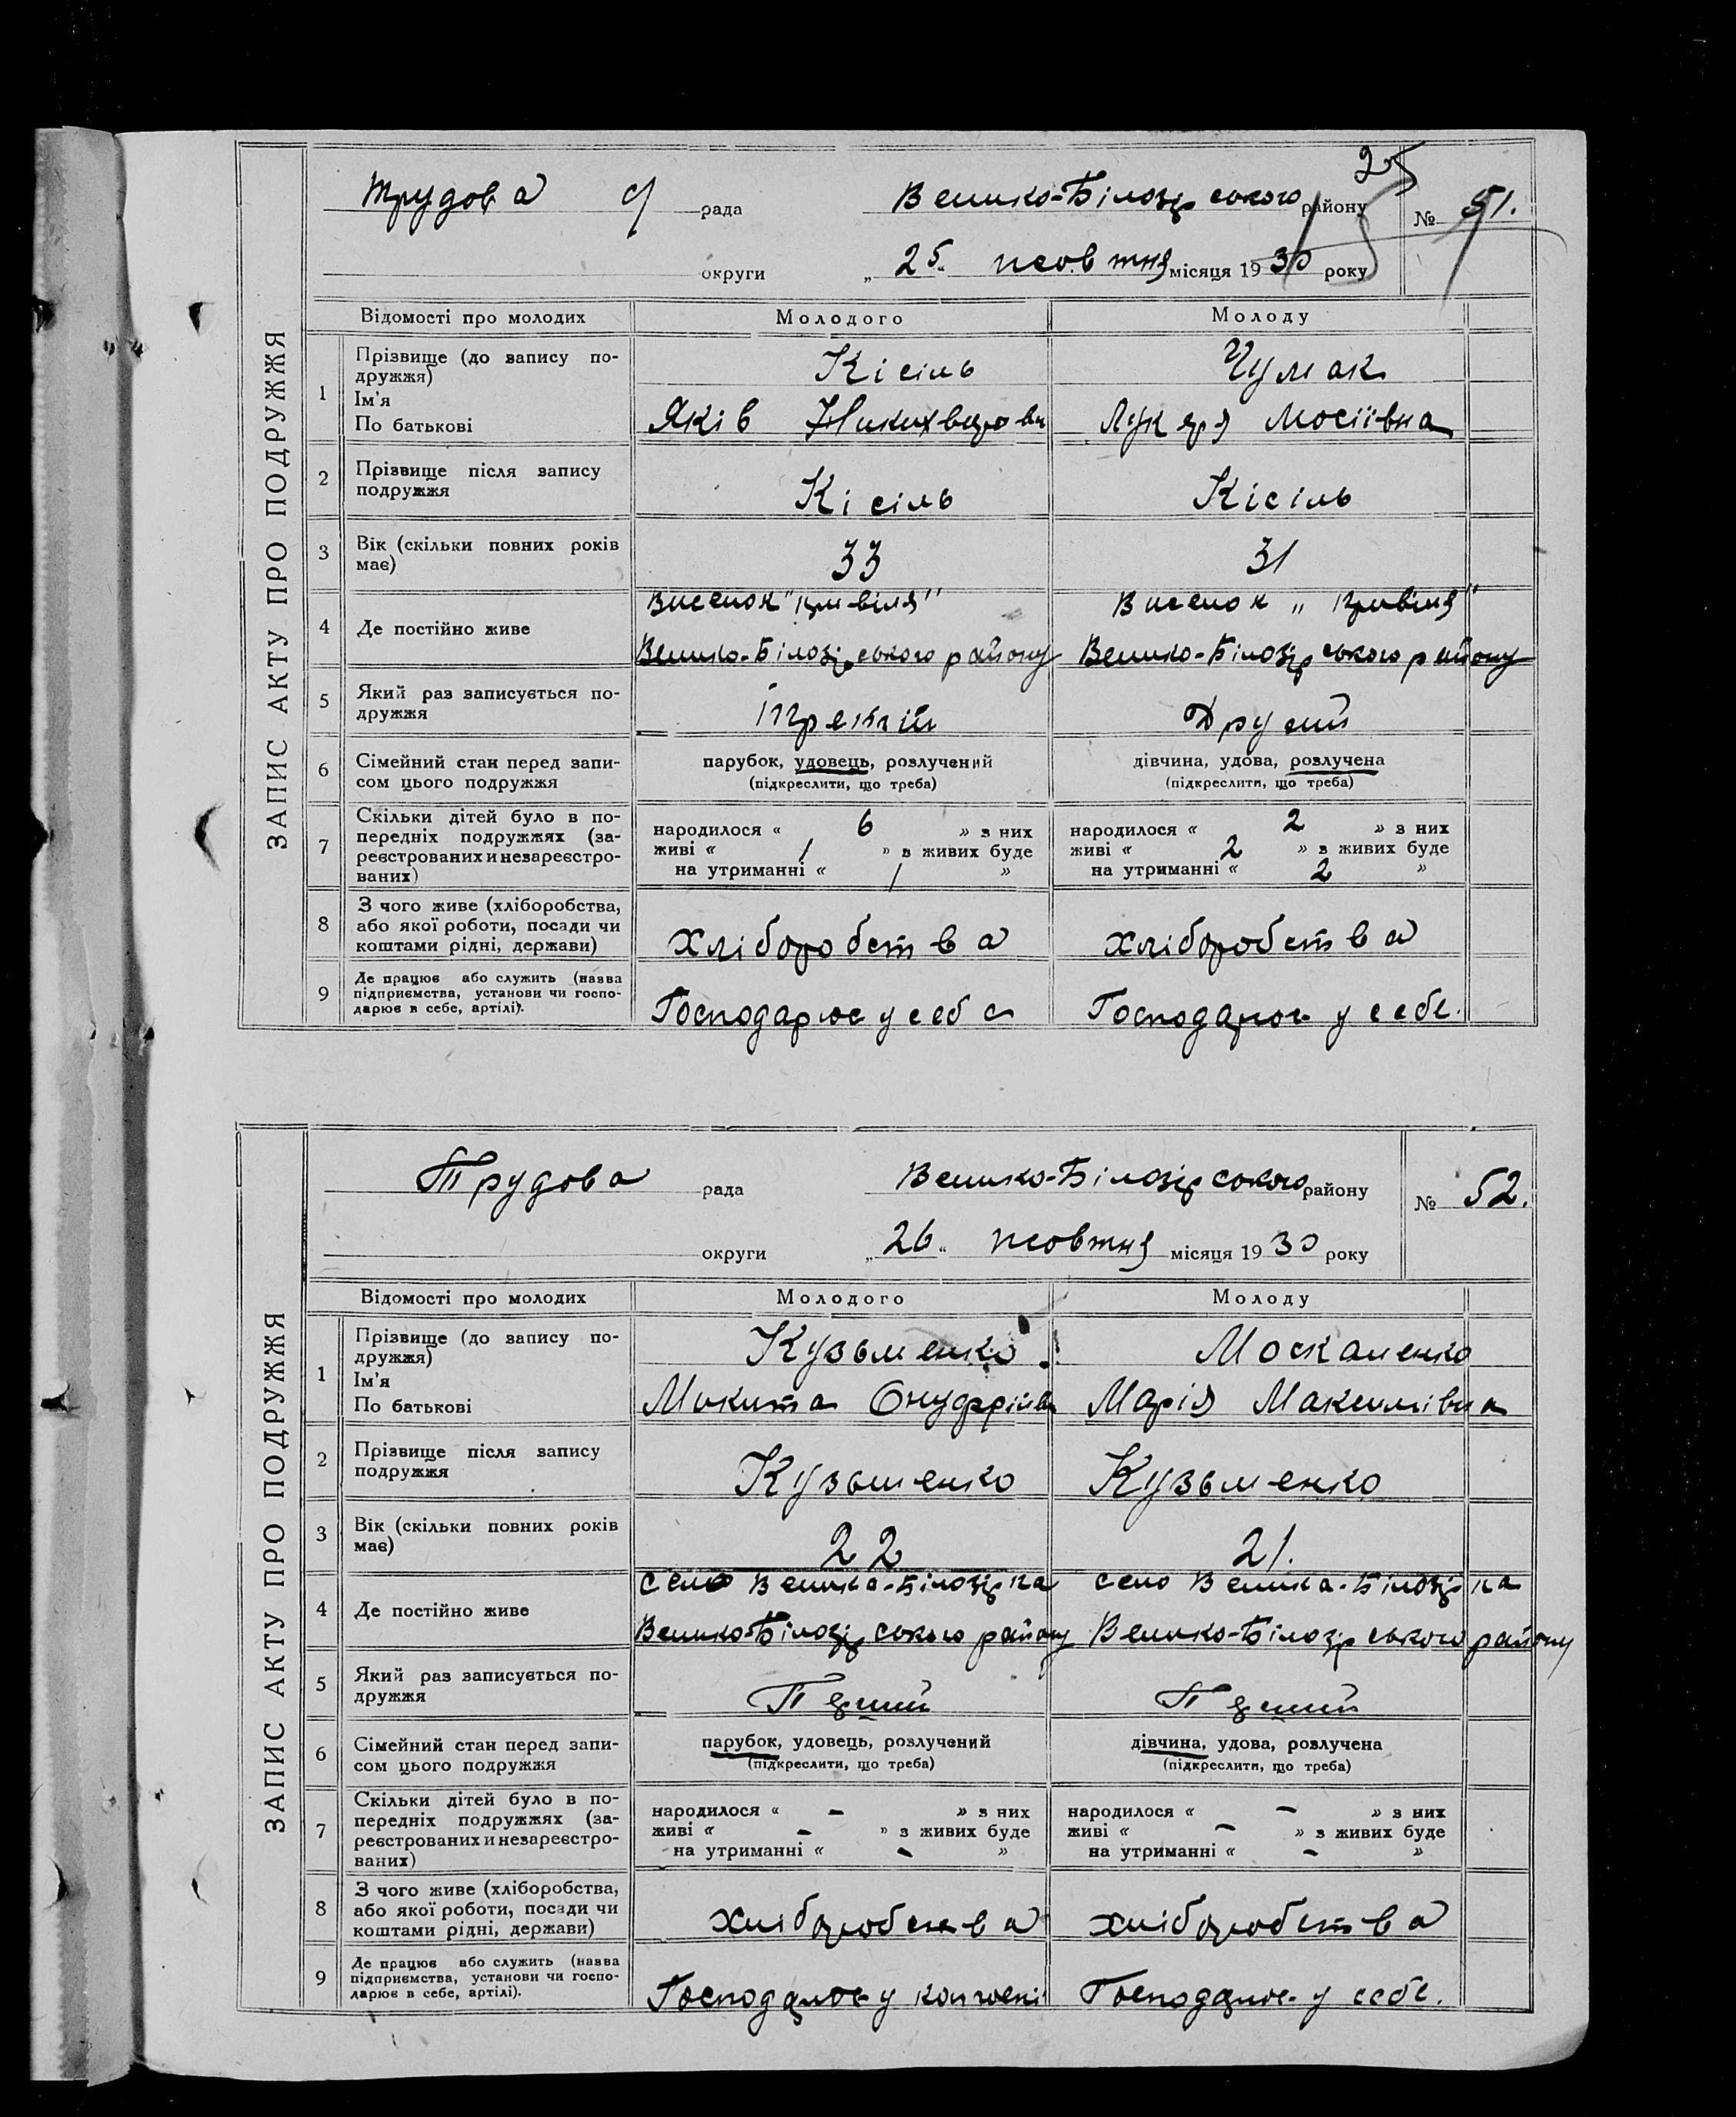 25
ЗАПИС АКТУ ПРО ПОДРУЖЖЯ
Трудова с/ рада Велико-Білозірського району № 51.
округи „ 25 “ жовтня місяця 1930 року
Відомості про молодих Молодого Молоду
1 Прізвище (до запису по-
дружжя) Кісіль Чумак
Ім'я
По батькові Яків Лукеря Мосіївна
2 Прізвище після запису
подружжя Кісіль Кісіль
3 Вік (скільки повних років
має) 33 31
4 Де постійно живе Виселок Виселок
Велико-Білозірського району Велико-Білозірського району
5 Який раз записується по-
дружжя Третій Другий
6 Сімейний стан перед запи-
сом цього подружжя парубок, удовець, розлучений дівчина, удова, розлучена
(підкреслити, що треба) (підкреслити, що треба)
7 Скільки дітей було в по-
передніх подружжях (за-
реєстрованих и незареєстро-
ваних) народилося « 6 » з них народилося « 2 » з них
живі « 1 » з живих буде живі « 2 » з живих буде
на утриманні « 1 » на утриманні « 2 »
8 З чого живе (хліборобства,
або якої роботи, посади чи
коштами рідні, держави) хліборобства хліборобства
9 Де працює або служить (назва
підприємства, установи чи госпо-
дарює в себе, артілі). Господарює у себе Господарює у себе.
ЗАПИС АКТУ ПРО ПОДРУЖЖЯ
Трудова рада Велико-Білозірського району № 52.
округи „ 26 “ жовтня місяця 1930 року
Відомості про молодих Молодого Молоду
1 Прізвище (до запису по-
дружжя) Кузьменко Москаленко
Ім'я
По батькові Микита Онуфрійов Марія Максимівна
2 Прізвище після запису
подружжя Кузьменко Кузьменко
3 Вік (скільки повних років
має) 22 21.
4 Де постійно живе село Велика-Білозірка село Велика-Білозірка
Велико-Білозірського району Велико-Білозірського району
5 Який раз записується по-
дружжя Перший Перший
6 Сімейний стан перед запи-
сом цього подружжя парубок, удовець, розлучений дівчина, удова, розлучена
(підкреслити, що треба) (підкреслити, що треба)
7 Скільки дітей було в по-
передніх подружжях (за-
реєстрованих и незареєстро-
ваних) народилося « - » з них народилося « - » з них
живі « - » з живих буде живі « - » з живих буде
на утриманні « - » на утриманні « - »
8 З чого живе (хліборобства,
або якої роботи, посади чи
коштами рідні, держави) хліборобства хліборобства
9 Де працює або служить (назва
підприємства, установи чи госпо-
дарює в себе, артілі). Господарює у Господарює у себе.